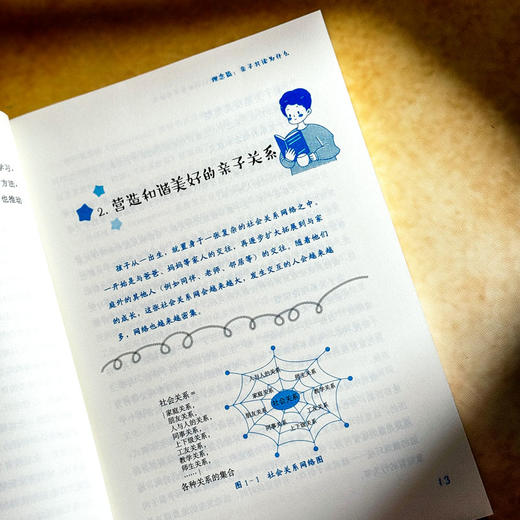 学习，
方法，
也推动
理念篇：亲子共读为什么
2. 营造和谐美好的亲子关系
孩子从一出生，就置身于一张复杂的社会关系网络之中。
一开始是与爸爸、妈妈等家人的交往，再逐步扩大拓展到与家
庭外的其他人（例如同伴、老师、邻居等）的交往。随着他们
的成长，这张社会关系网会越来越大，发生交互的人会越来越
多，网络也越来越密集。
社会关系＝
｛家庭关系，
朋友关系，
人与人的关系，
同事关系，
上下级关系，
工友关系，
教学关系，
师生关系，
……｝
各种关系的集合
人与人的关系
师生关系
家庭关系
教学关系
社会关系
朋友关系
工友关系
同事关系
上下级关系
图1-1 社会关系网络图
13